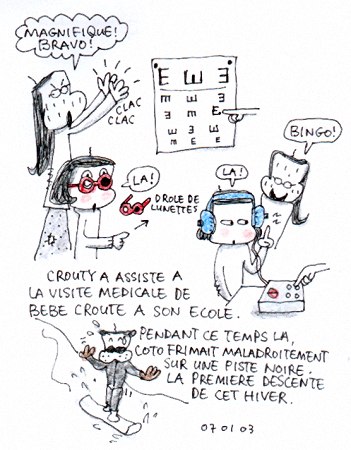 MAGNIFIQUE!
BRAVO!
CLAC
CLAC
E Ш Ǝ
E Ш E
Ш E
Ш
M E
BINGO!
LA!
DROLE DE
LUNETTES
LA!
CROUTY A ASSISTE A
LA VISITE MEDICALE DE
BEBE CROUTE A SON ECOLE.
PENDANT CE TEMPS LA,
COTO FRIMAIT MALADROITEMENT
SUR UNE PISTE NOIRE.
LA PREMIERE DESCENTE
DE CET HIVER.
07 01 03